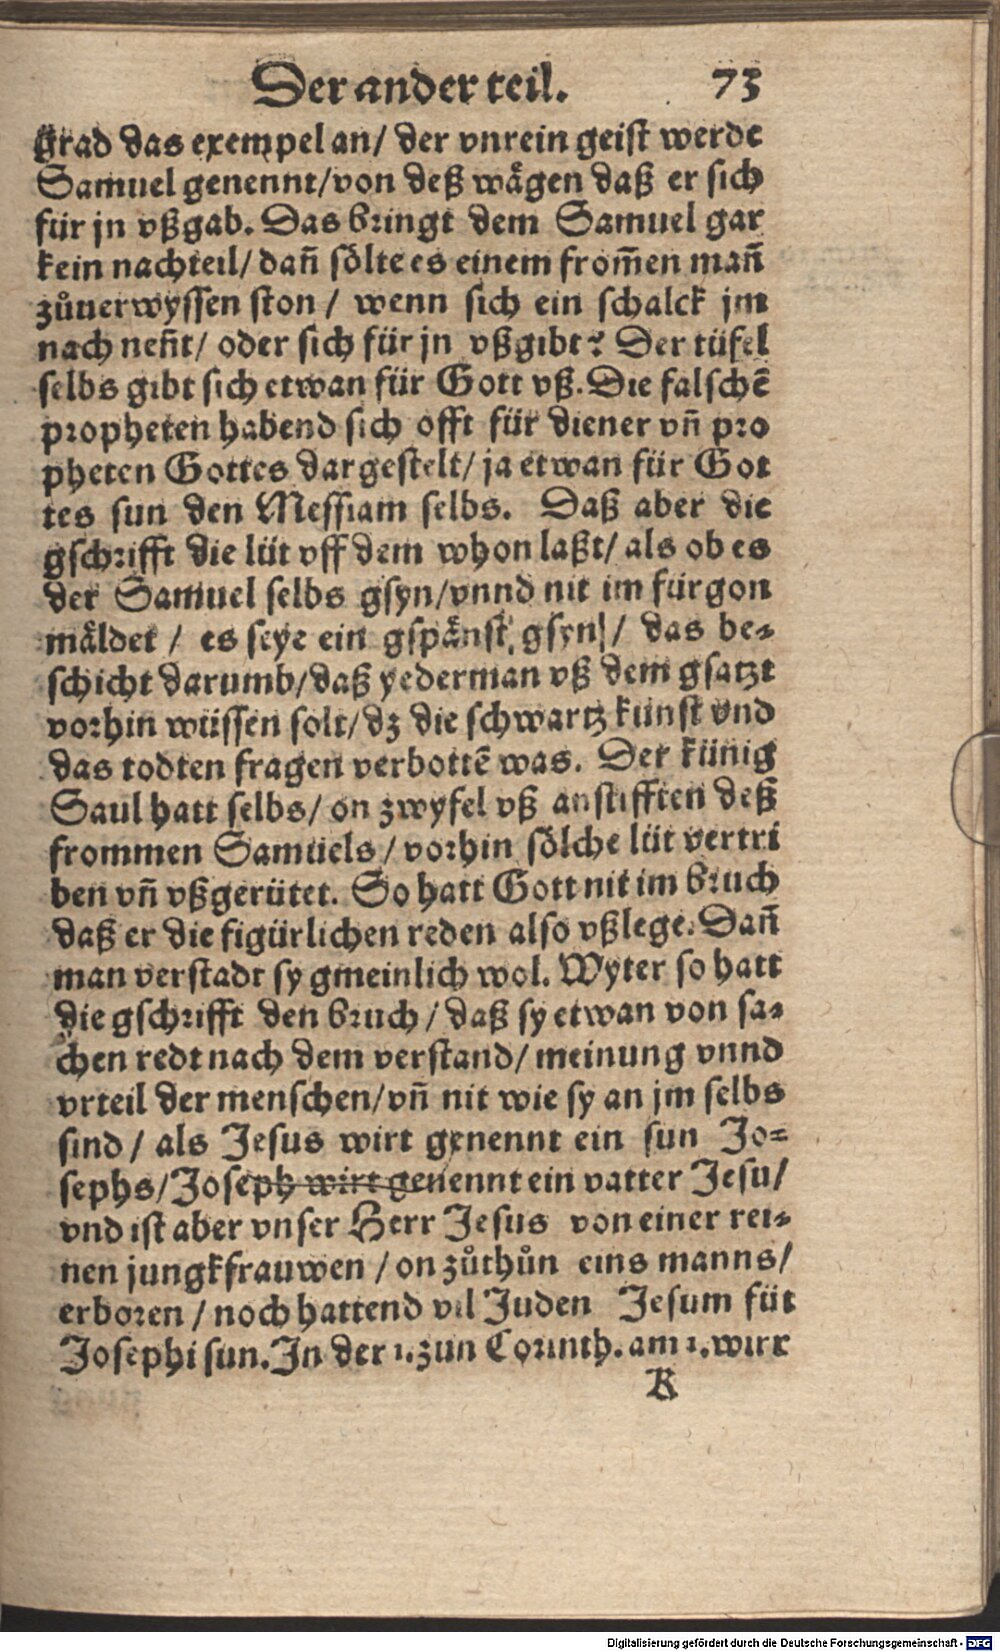 Der ander teil. 73
grad das exempel an/ der vnrein geist werde
Samuel genennt/von deß wågen daß er sich
für jn vßgab. Das bringt dem Samuel gar
kein nachteil/ dañ sölte es einem from̄en mañ
zůuerwyssen ston / wenn sich ein schalck jm
nach neñt/ oder sich für jn vßgibt? Der tüfel
selbs gibt sich etwan für Gott vß. Die falschē
propheten habend sich offt für diener vñ pro
pheten Gottes dargestelt/ ja etwan für Got
tes sun den Messiam selbs. Daß aber die
gschrifft die lüt vff dem whon laßt/ als ob es
der Samuel selbs gsyn/vnnd nit im fürgon
mäldet / es seye ein gspänst gsyn/ das be-
schicht darumb/daß yederman vß dem gsatzt
vorhin wüssen solt/dz die schwartz kunst vnd
das todten fragen verbottē was. Der künig
Saul hatt selbs/ on zwyfel vß anstifften deß
frommen Samuels/ vorhin sölche lüt vertri
ben vñ vßgerütet. So hatt Gott nit im bruch
daß er die figürlichen reden also vßlege. Dañ
man verstadt sy gmeinlich wol. Wyter so hatt
die gschrifft den bruch/ daß sy etwan von sa-
chen redt nach dem verstand/ meinung vnnd
vrteil der menschen/vñ nit wie sy an jm selbs
sind/ als Jesus wirt genennt ein sun Jo-
sephs/Joseph wirt genennt ein vatter Jesu/
vnd ist aber vnser Herr Jesus von einer rei-
nen jungkfrauwen / on zůthůn eins manns/
erboren / noch hattend vil Juden Jesum für
Josephi sun. In der 1. zun Corinth. am 1. wirt
K
Digitalisierung gefördert durch die Deutsche Forschungsgemeinschaft - DFG